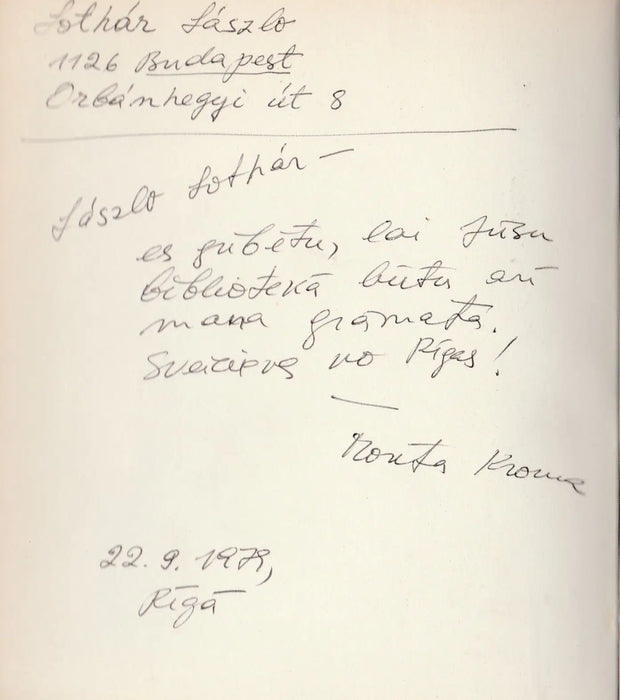 Lothár László
1126 Budapest
Orbánhegyi út 8
László Lothár —
es gribētu, lai Jūsu
bibliotekā būtu arī
mana grāmata.
Sveiciens no Rīgas!
Monta Kroma
22. 9. 1979,
Rīgā